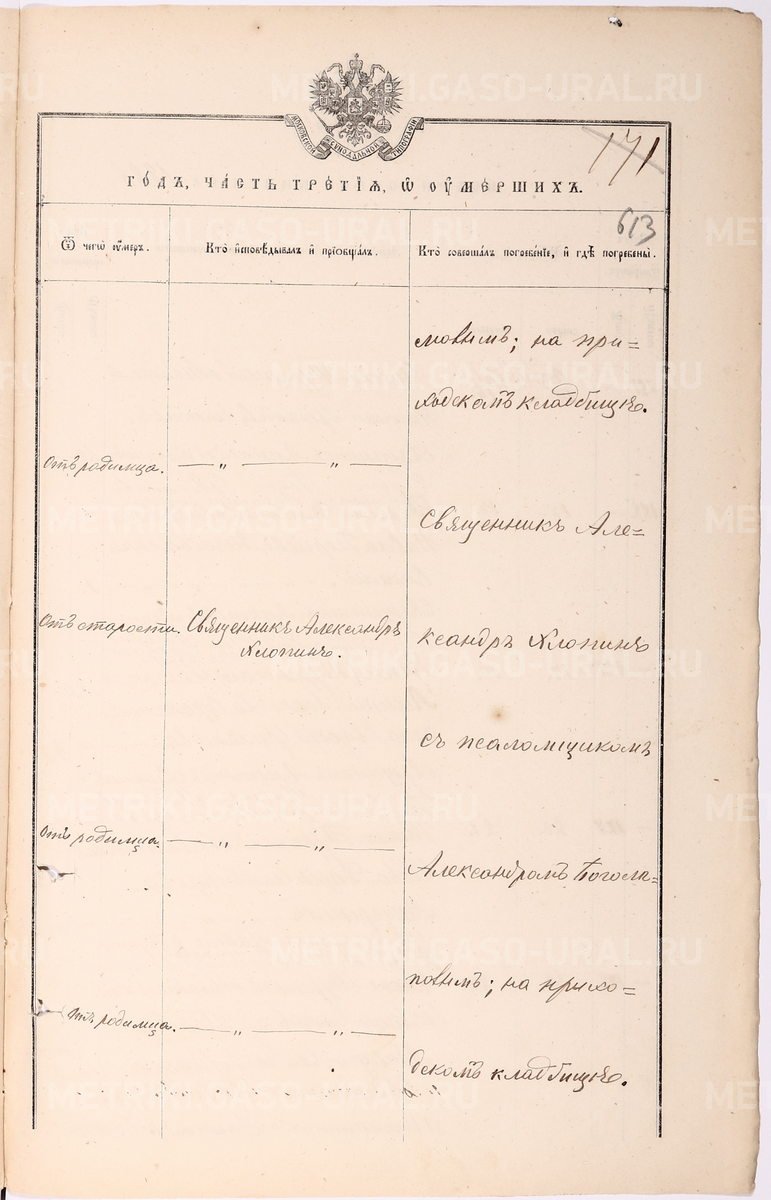 МОСКОВСКОЙ СѴНОДАЛЬНОЙ ТИПОГРАФІИ
171
ГО́ДЪ, ЧА́СТЬ ТРЕ́ТІѦ, Ѡ҆ ОУ҆МЕ́РШИХЪ.
613
Ѿ чегѡ̀ оу҆́меръ.
Кто̀ и҆сповѣ́дывалъ и҆ прїѻбща́лъ.
Кто̀ соверша́лъ погребе́нїе, и҆ гдѣ̀ погребены̀.
мовымъ; на при=
ходскомъ кладбищѣ.
Отъ родимца. — „ — „ —
Священникъ Але=
Отъ старости.
Священникъ Александръ
Хлопинъ.
ксандръ Хлопинъ
съ псаломщикомъ
Отъ родимца. — „ — „ —
Александромъ
повымъ; на прихо=
Отъ родимца. — „ — „ —
дскомъ кладбищѣ.
METRIKI.GASO-URAL.RU